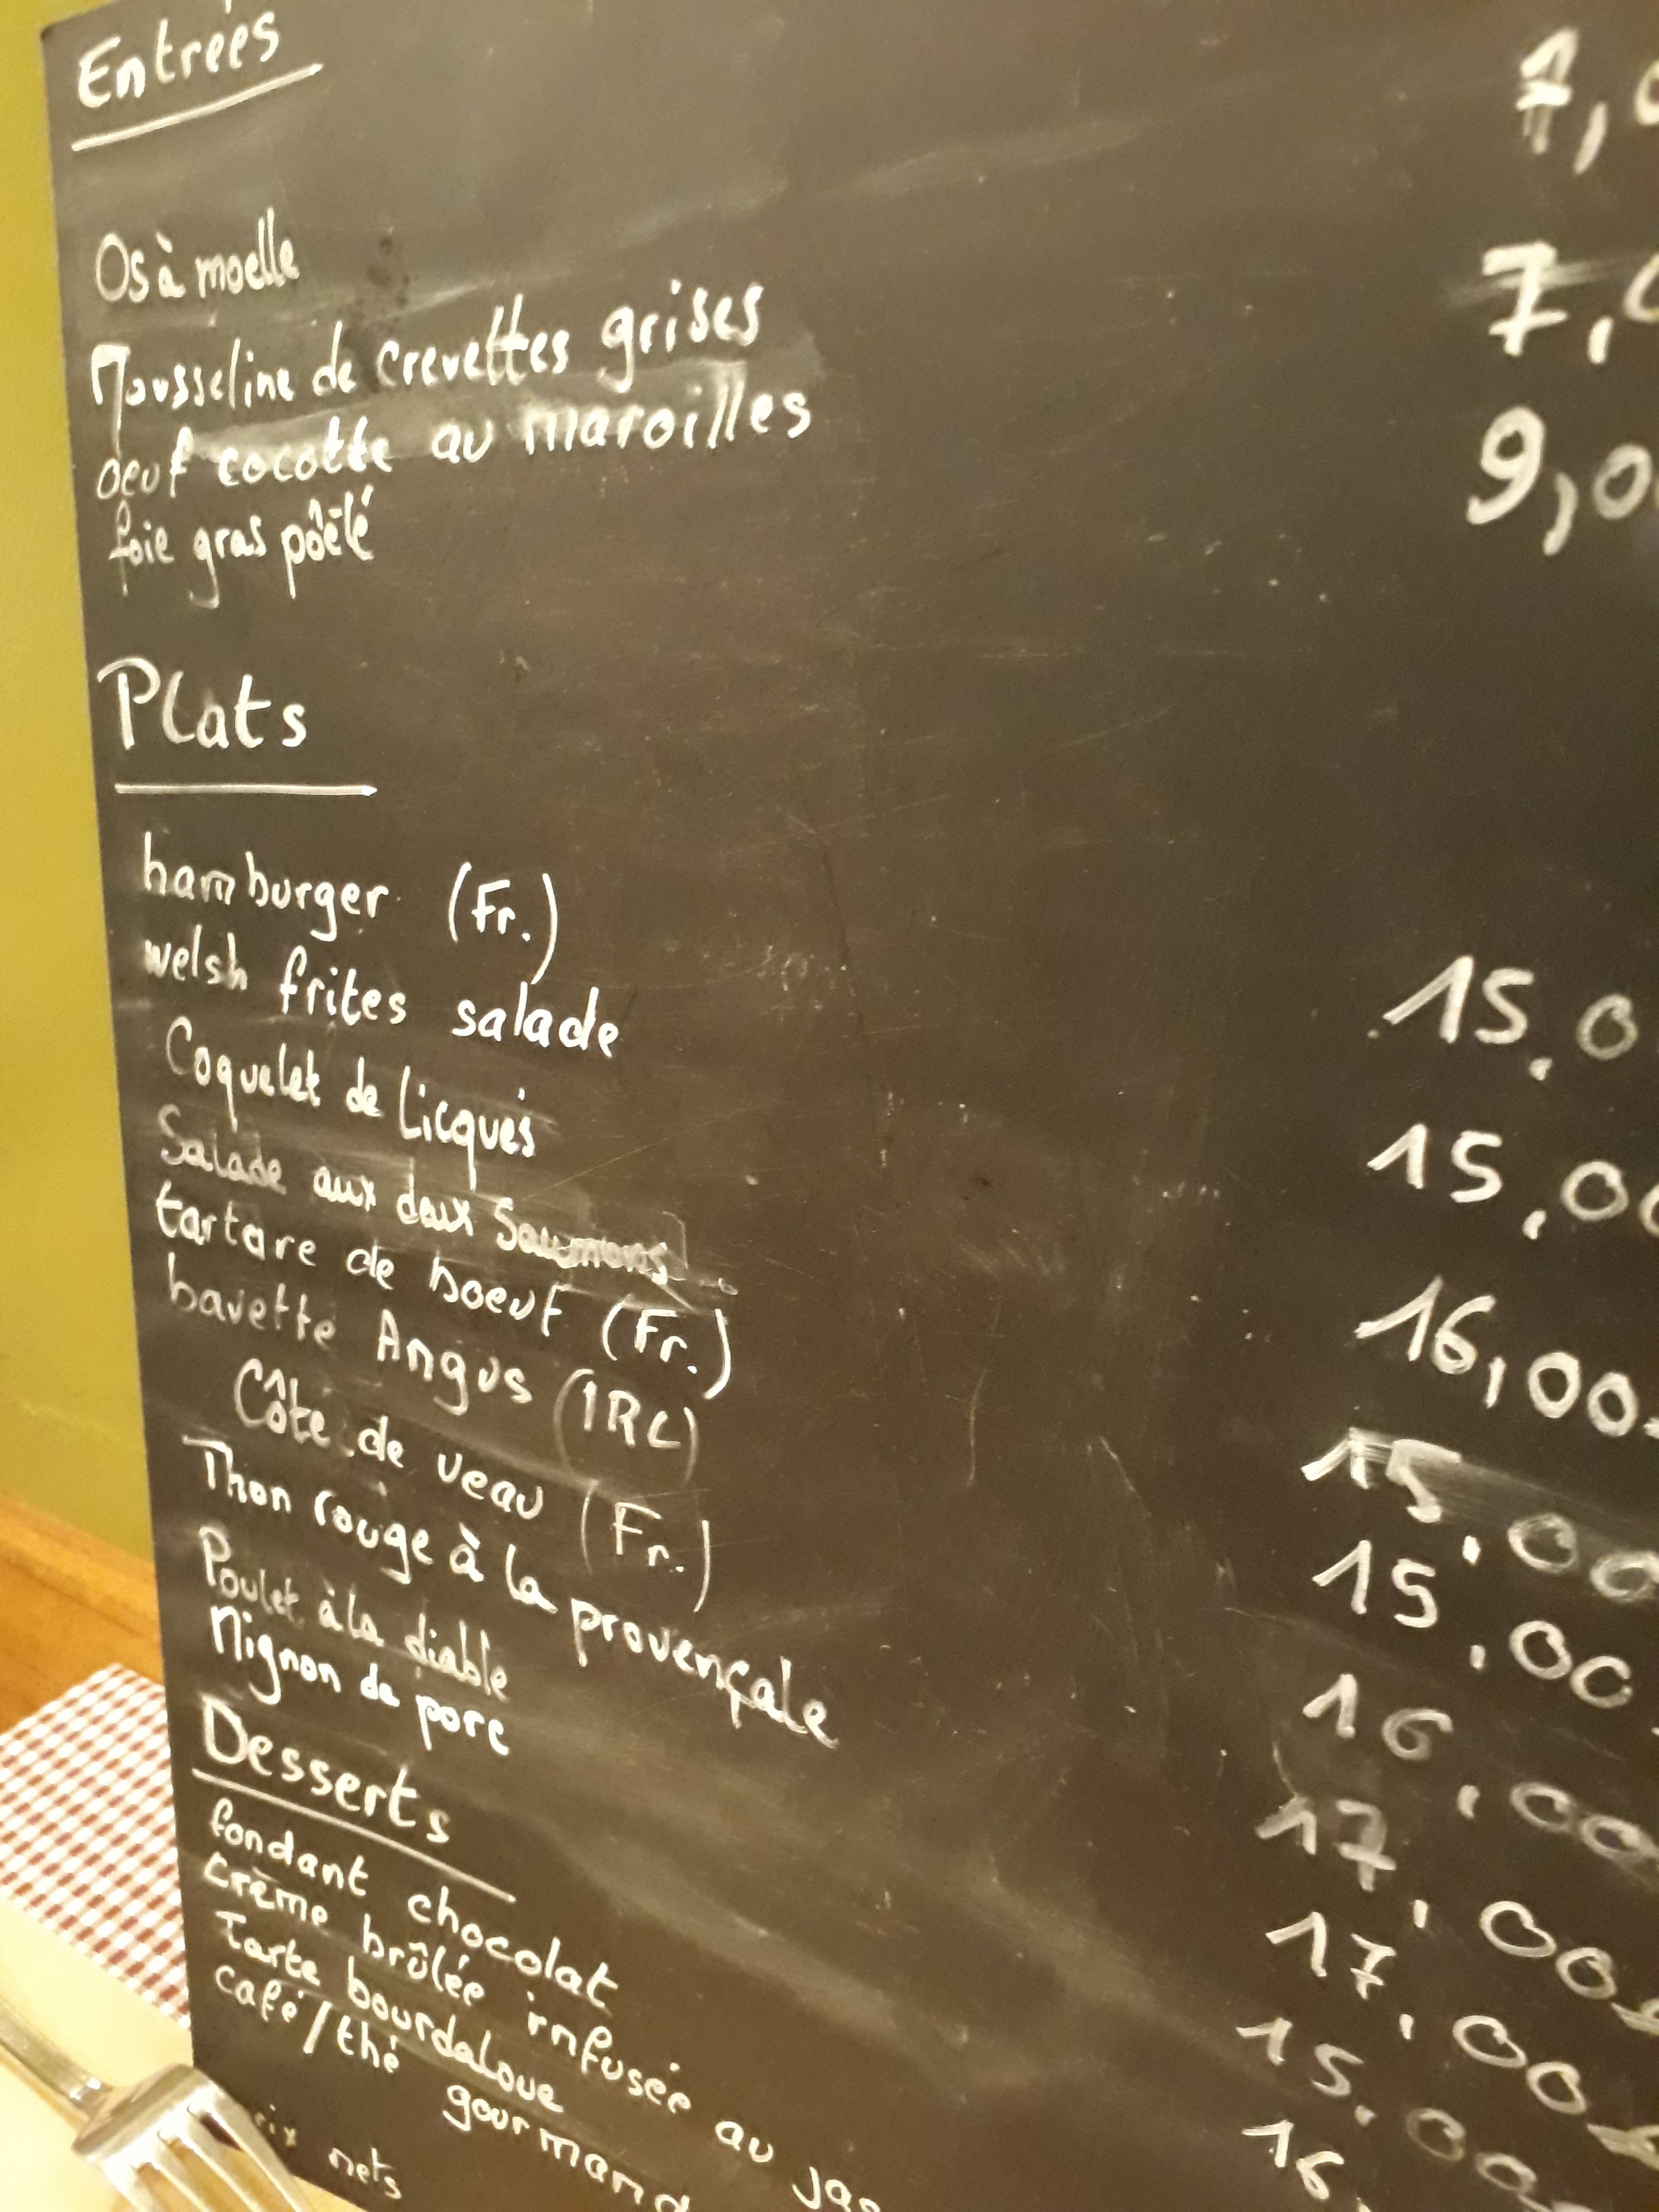 Entrées
Os à moelle
Mousseline de crevettes grises
oeuf cocotte au maroilles
foie gras pôêlé
7,0
9,0
Plats
hamburger (Fr.)
welsh frites salade
Coquelet de Licques
Salade aux deux Saumons
tartare de boeuf (Fr.)
bavette Angus (IRL)
Côte de veau (Fr.)
Thon rouge à la provençale
Poulet à la diable
Mignon de porc
15,0
15,00
16,00
15,00
15,00
16,00
17,00
17,00
15,00
16,
Desserts
fondant chocolat
Crème brûlée infusée au
Tarte bourdaloue
café/thé gourmand
nets